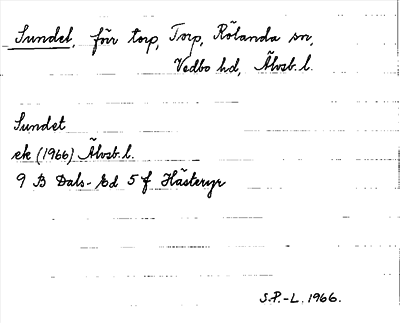 Sundet, förr torp, Torp, Rölanda sn,
Vedbo hd, Älvsb. l.
Sundet
ek (1966) Älvsb. l.
9 B Dals-Ed 5 f Hästeryr
S.P.-L. 1966.